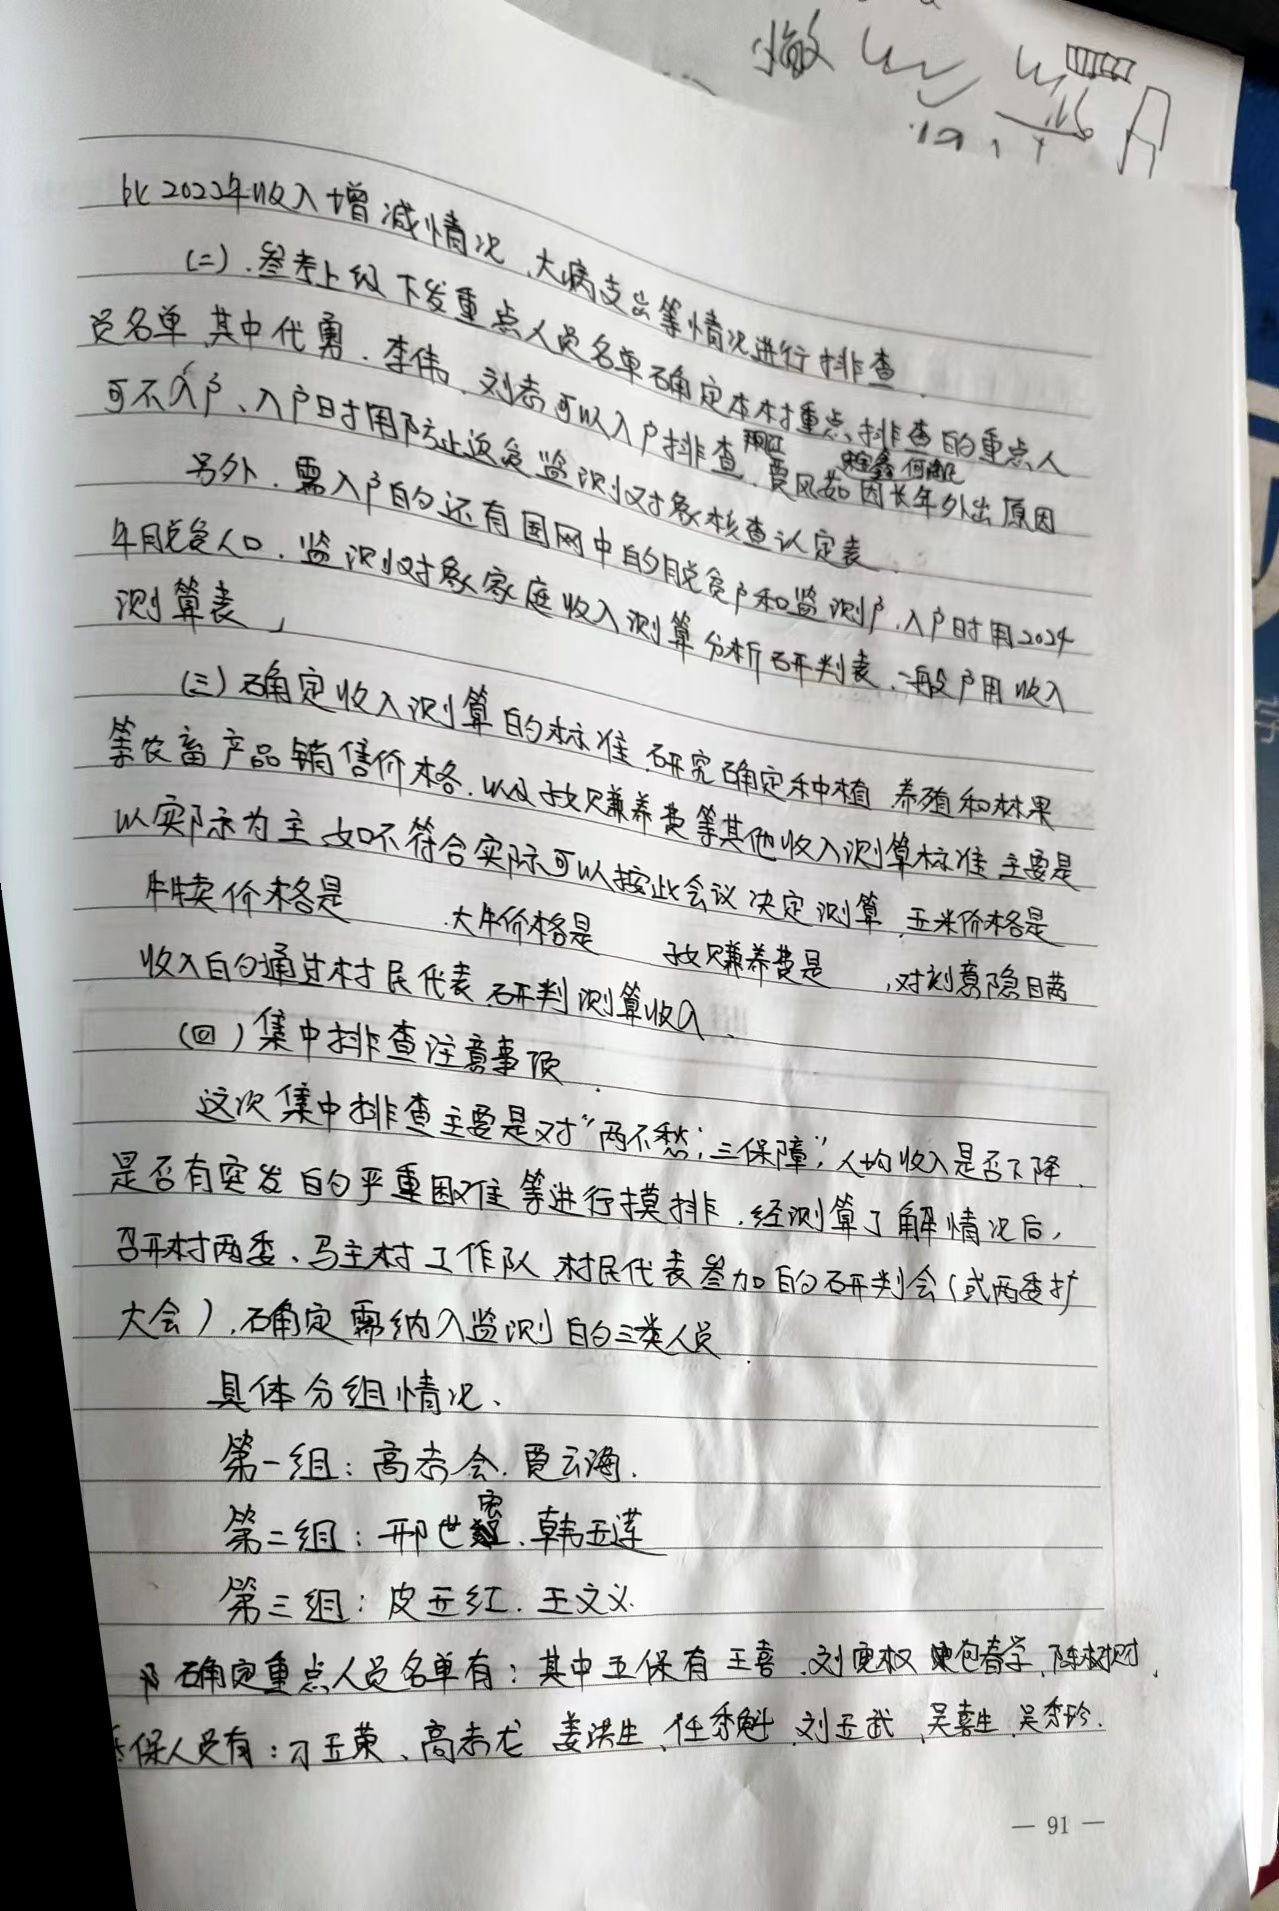 小敏
比2023年收入增减情况、大病支出等情况进行排查.
(二).参考上级下发重点人员名单确定本村重点排查的重点人
员名单,其中代勇.李伟、刘志可以入户排查,贾凤茹因长年外出原因
可不入户、入户时用防止返贫监测对象核查认定表.
另外.需入户的还有国网中的脱贫户和监测户.入户时用2024
年脱贫人口.监测对象家庭收入测算分析研判表.一般户用收入
测算表」
(三)确定收入测算的标准.研究确定种植 养殖和林果
等农畜产品销售价格.以及子女赡养费等其他收入测算标准 主要是
以实际为主 如不符合实际可以按此会议决定测算.玉米价格是
牛犊价格是 .大牛价格是 子女赡养费是 ,对刻意隐瞒
收入的通过村民代表研判测算收入.
(四)集中排查注意事项.
这次集中排查主要是对“两不愁;三保障”,人均收入是否下降.
是否有突发的严重困难等进行摸排.经测算了解情况后,
召开村两委、驻村工作队 村民代表参加的研判会(或两委扩
大会).确定需纳入监测的三类人员.
具体分组情况、
第一组:高志会.贾云海.
第二组:邢世宏.韩玉莲
第三组:皮玉红.王文义.
确定重点人员名单有:其中五保有王喜.刘宽权 包春学.陈树财.
保人员有:刁玉荣、高志龙 姜洪生、任秀魁 刘玉武、吴喜生 吴秀玲.
— 91 —